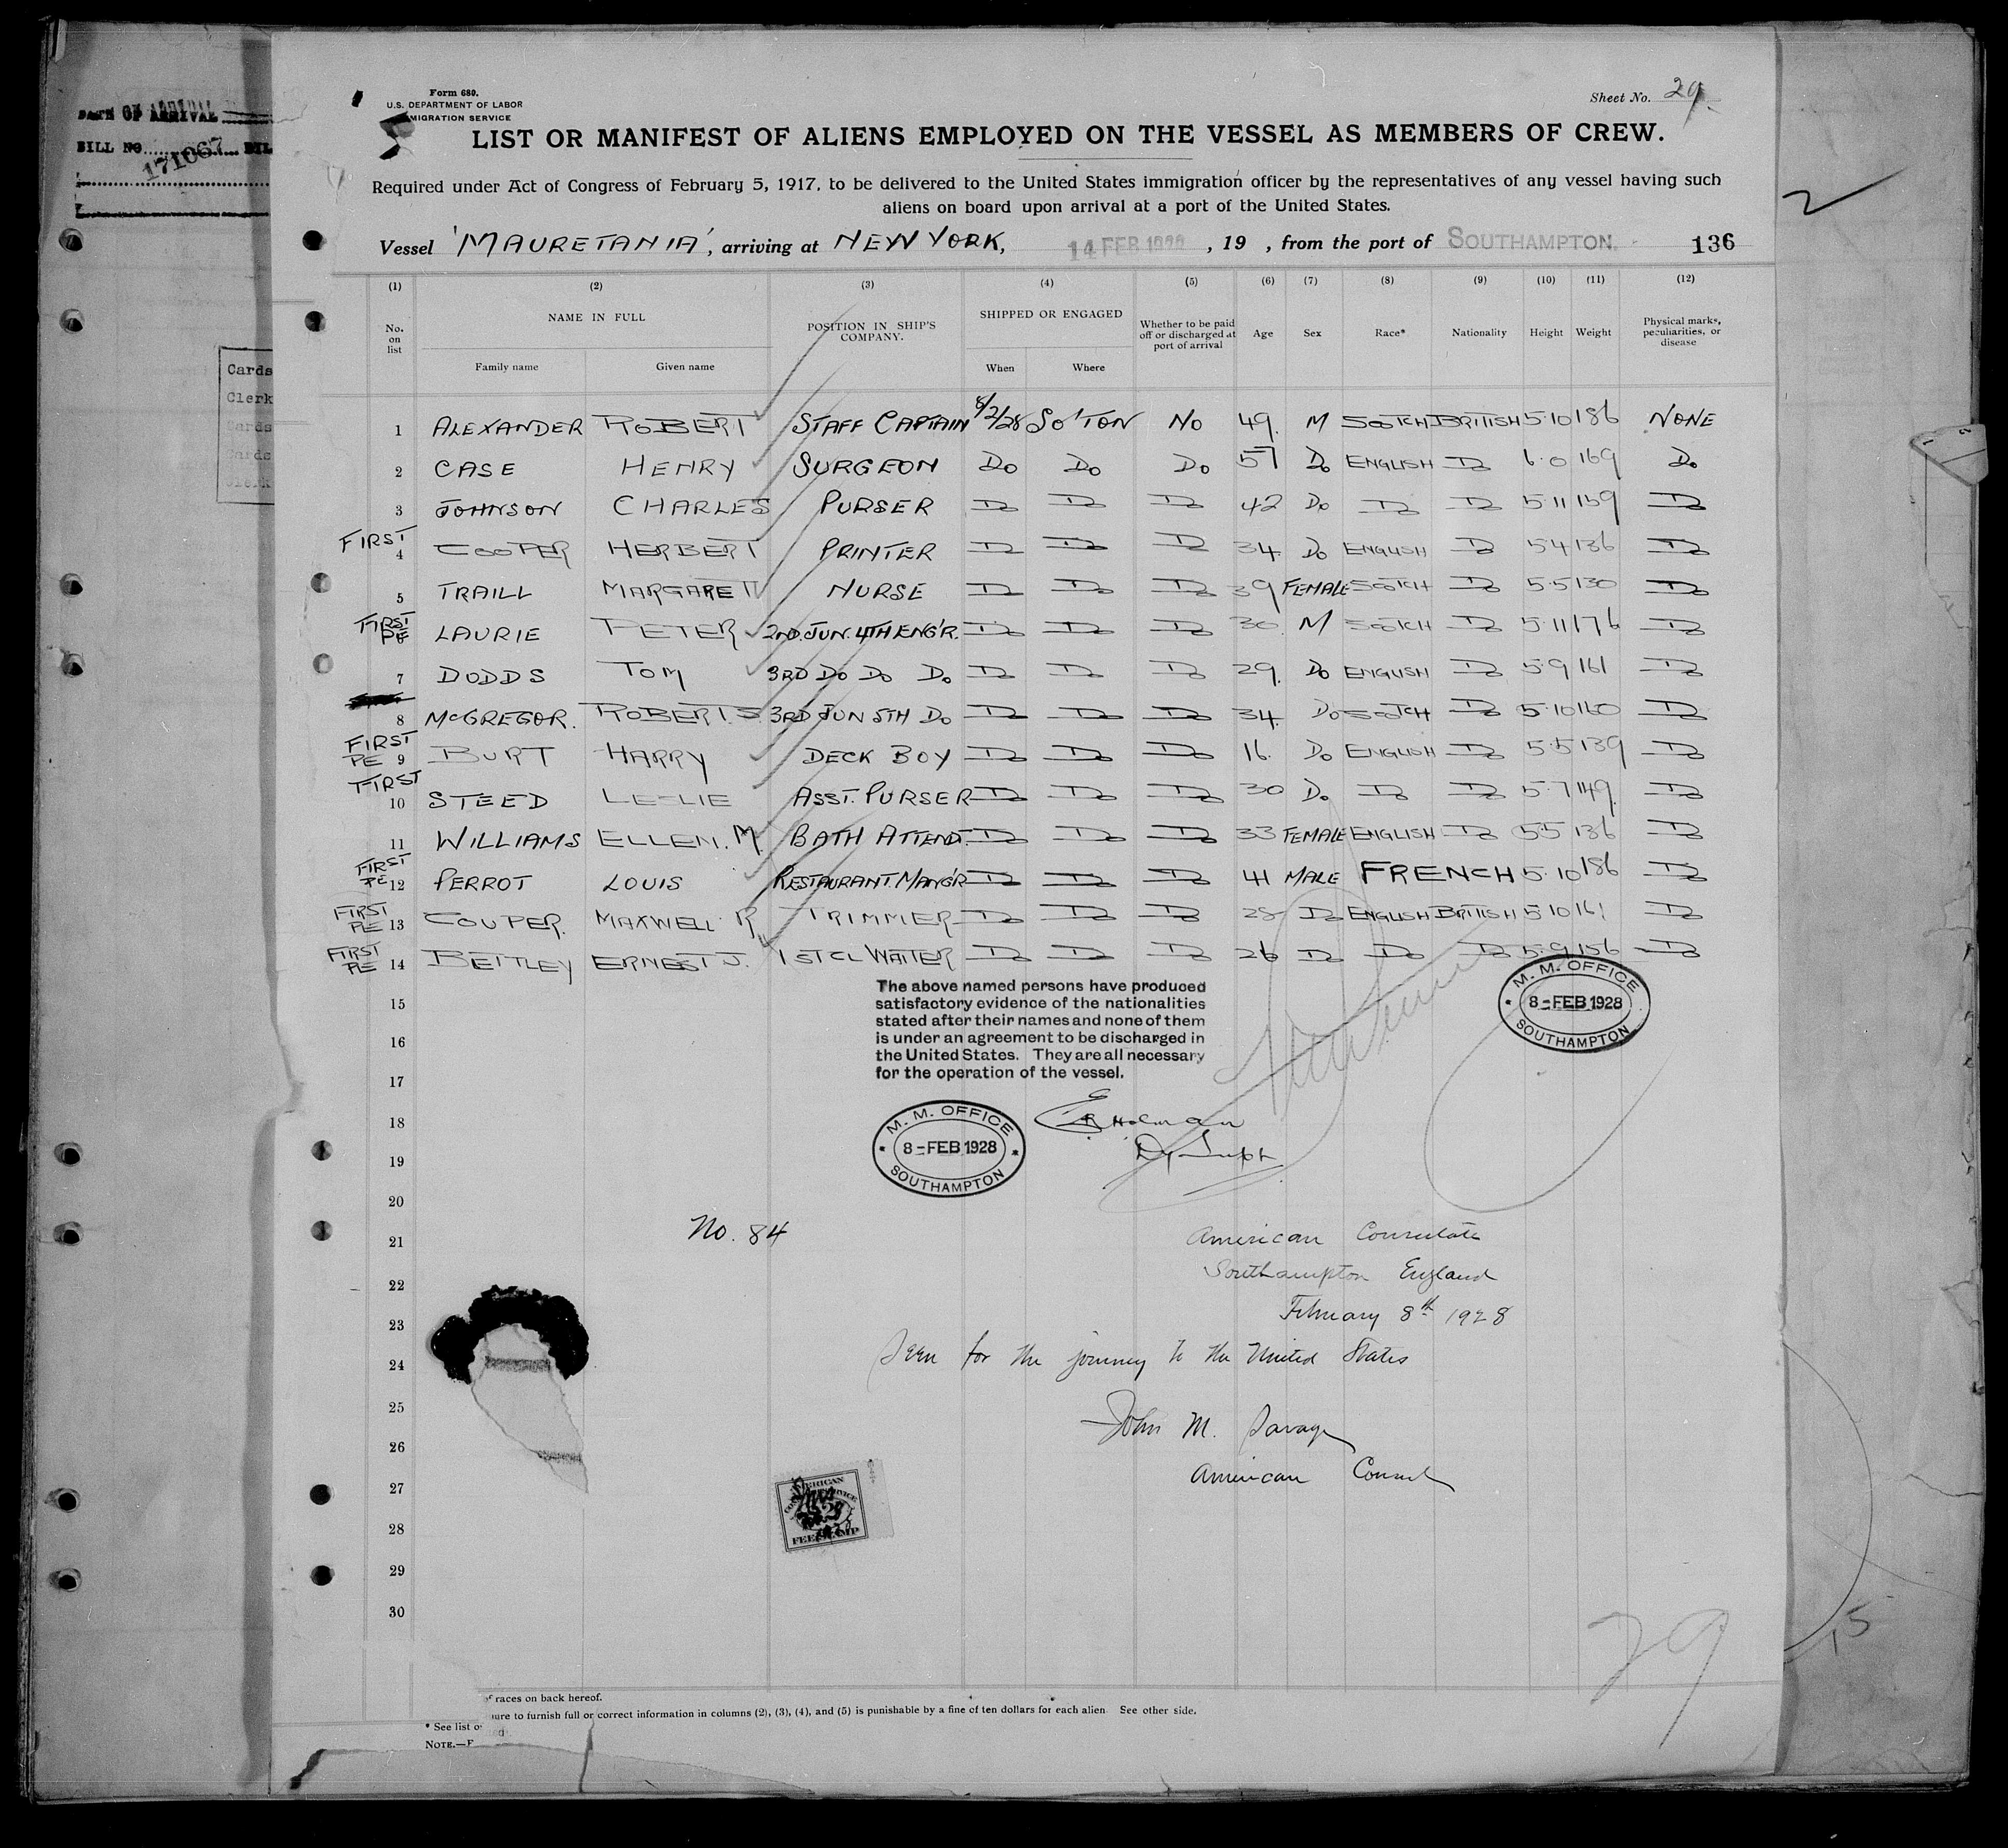 DATE OF ARRIVAL
BILL NO.
171067
Cards
Clerk
Cards
Cards
Clerk
Form 680.
U.S. DEPARTMENT OF LABOR
MIGRATION SERVICE
Sheet No. 29.
LIST OR MANIFEST OF ALIENS EMPLOYED ON THE VESSEL AS MEMBERS OF CREW.
Required under Act of Congress of February 5, 1917, to be delivered to the United States immigration officer by the representatives of any vessel having such
aliens on board upon arrival at a port of the United States.
Vessel 'MAURETANIA', arriving at NEW YORK, 14 FEB 1928, 19 , from the port of SOUTHAMPTON. 136
(1) (2) (3) (4) (5) (6) (7) (8) (9) (10) (11) (12)
No. on list NAME IN FULL POSITION IN SHIP'S COMPANY. SHIPPED OR ENGAGED Whether to be paid off or discharged at port of arrival Age Sex Race* Nationality Height Weight Physical marks, peculiarities, or disease
Family name Given name When Where
1 ALEXANDER ROBERT STAFF CAPTAIN 8/2/28 SO'TON NO 49. M SCOTCH BRITISH 5.10 186 NONE
2 CASE HENRY SURGEON DO DO DO 57 DO ENGLISH DO 6.0 169 DO
3 JOHNSON CHARLES PURSER DO DO DO 42 DO DO DO 5.11 159 DO
FIRST 4 COOPER HERBERT PRINTER DO DO DO 34. DO ENGLISH DO 5.4 136 DO
5 TRAILL MARGARET NURSE DO DO DO 39 FEMALE SCOTCH DO 5.5 130 DO
FIRST PE 6 LAURIE PETER 2ND. JUN. 4TH ENG'R. DO DO DO 30. M SCOTCH DO 5.11 176 DO
7 DODDS TOM 3RD DO DO DO DO DO DO 29. DO ENGLISH DO 5.9 161 DO
8 McGREGOR. ROBERT. S. 3RD JUN 5TH DO DO DO DO 34. DO SCOTCH DO 5.10 160 DO
FIRST PE 9 BURT HARRY DECK BOY DO DO DO 16. DO ENGLISH DO 5.5 139 DO
FIRST 10 STEED LESLIE ASST. PURSER DO DO DO 30 DO DO DO 5.7 149. DO
11 WILLIAMS ELLEN. M. BATH ATTENDT. DO DO DO 33 FEMALE ENGLISH DO 5.5 136 DO
FIRST PE 12 PERROT LOUIS RESTAURANT. MANG'R DO DO DO 41 MALE FRENCH 5.10 186 DO
FIRST PE 13 COUPER. MAXWELL R TRIMMER DO DO DO 28 DO ENGLISH BRITISH 5.10 161 DO
FIRST PE 14 BEITLEY ERNEST J. 1ST CL WAITER DO DO DO 26 DO DO DO 5.9 156 DO
15
16
17
18
19
20
21
22
23
24
25
26
27
28
29
30
The above named persons have produced
satisfactory evidence of the nationalities
stated after their names and none of them
is under an agreement to be discharged in
the United States. They are all necessary
for the operation of the vessel.
M. M. OFFICE
8-FEB 1928
SOUTHAMPTON
M. M. OFFICE
8-FEB 1928
SOUTHAMPTON
Holman
Dy Supt
No. 84
American Consulate
Southampton England
February 8th 1928
Seen for the journey to the United States
John M. Savage
American Consul
FEE STAMP
29
15
of races on back hereof.
ure to furnish full or correct information in columns (2), (3), (4), and (5) is punishable by a fine of ten dollars for each alien. See other side.
* See list o
NOTE.—F